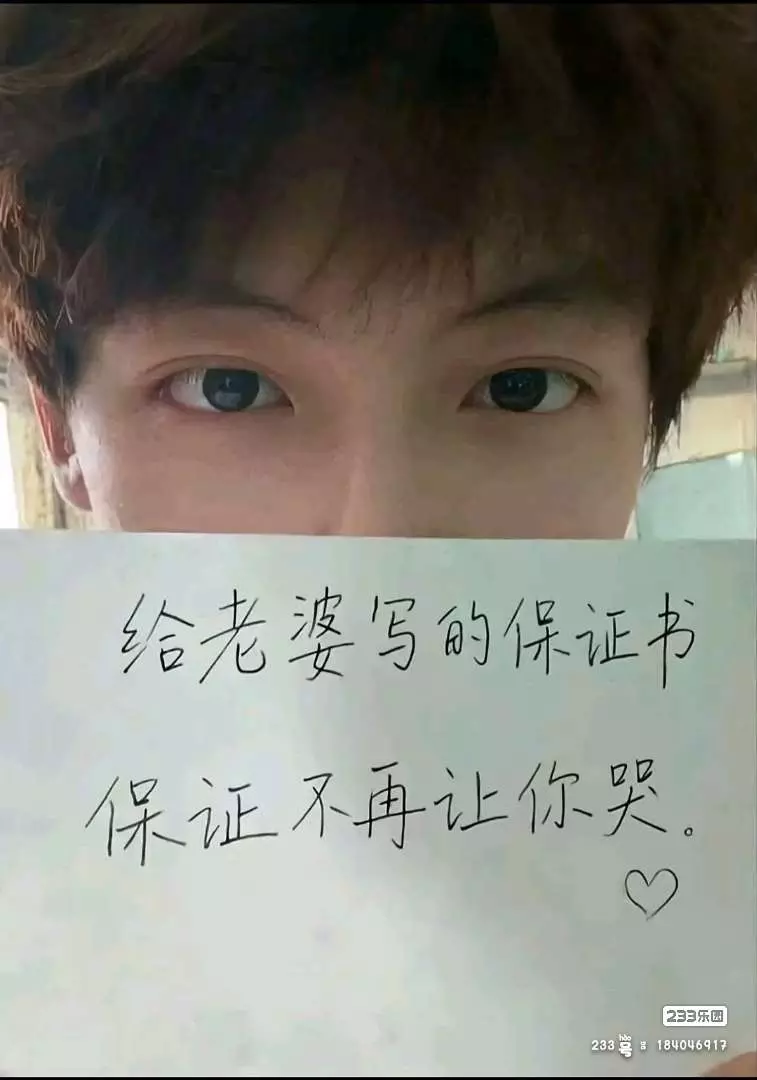 给老婆写的保证书
保证不再让你哭。
♡
233乐园
233号：184046917